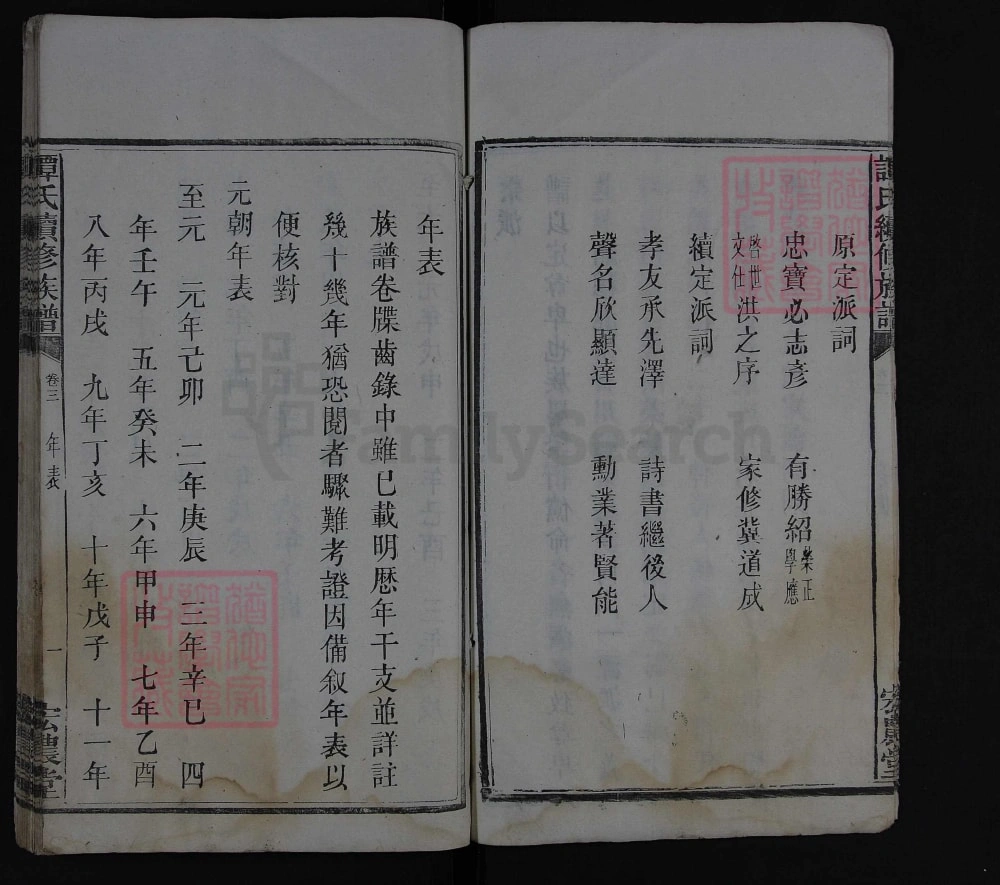 譚氏續修族譜
原定派詞
忠寶必志彥 有勝紹 榮正 學應
曾世 文仕 洪之序 家修冀道成
續定派詞
孝友承先澤 詩書繼後人
聲名欣顯達 勳業著賢能
宏農堂
年表
族譜卷牒齒錄中雖已載明歷年干支並詳註
幾十幾年猶恐閱者驟難考證因備叙年表以
便核對
元朝年表
至元 元年己卯 二年庚辰 三年辛巳 四
年壬午 五年癸未 六年甲申 七年乙酉
八年丙戌 九年丁亥 十年戊子 十一年
譚氏續修族譜 卷三 年表 一 宏農堂
FamilySearch